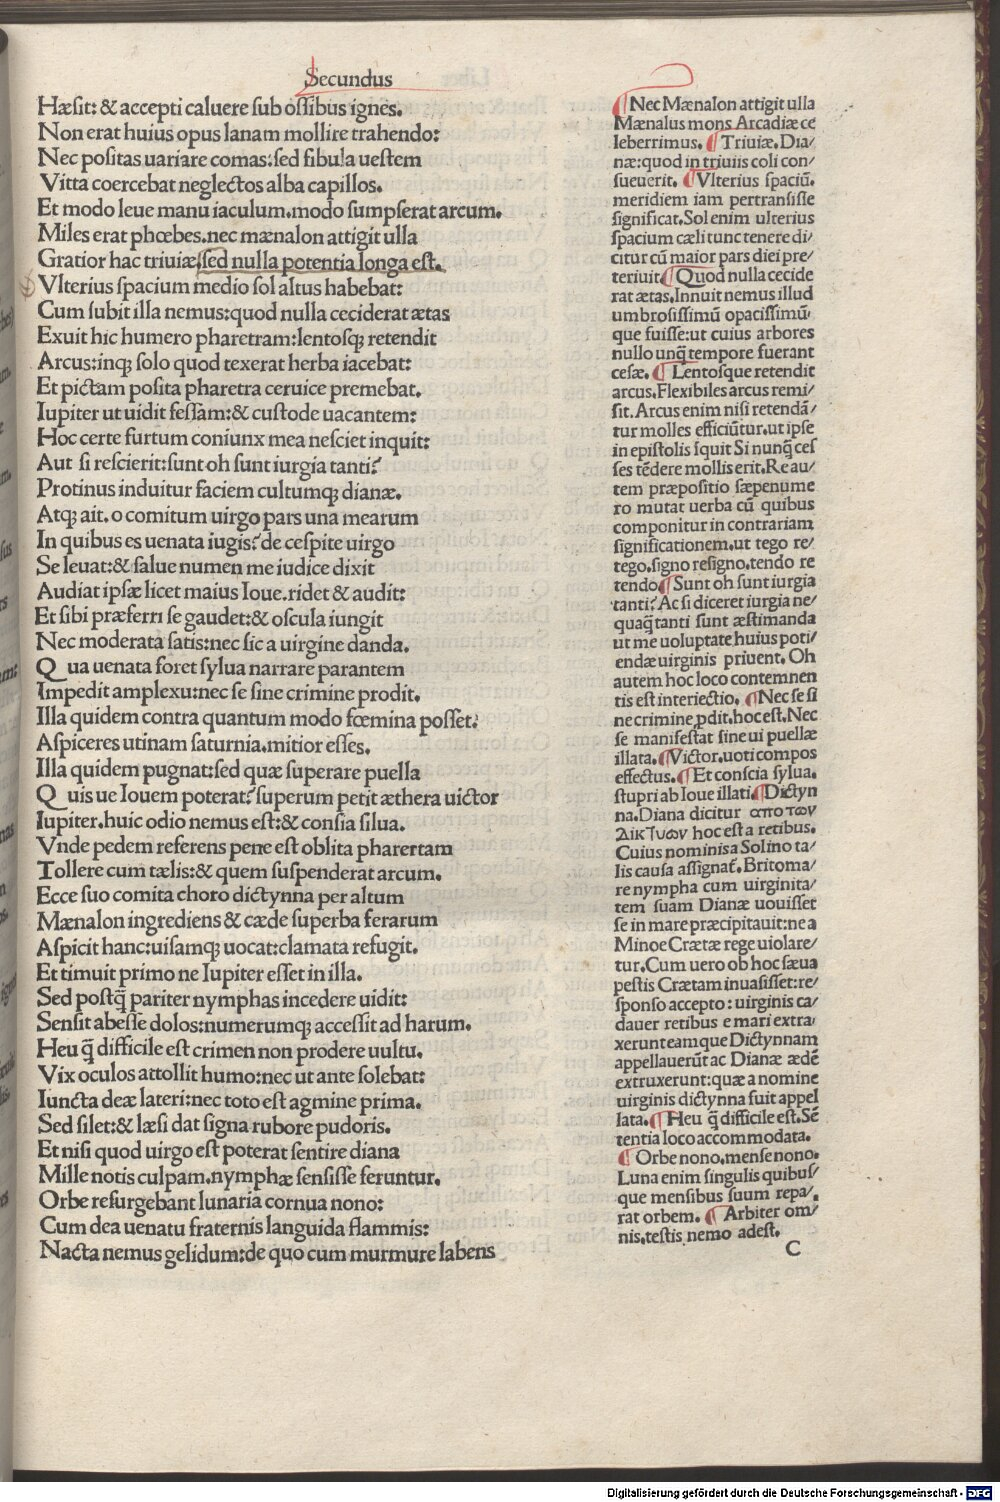 Secundus
Hæsit: & accepti caluere sub ossibus ignes.
Non erat huius opus lanam mollire trahendo:
Nec positas uariare comas: sed fibula uestem
Vitta coercebat neglectos alba capillos.
Et modo leue manu iaculum. modo sumpserat arcum.
Miles erat phœbes. nec mænalon attigit ulla
Gratior hac triuiæ. sed nulla potentia longa est.
Vlterius spacium medio sol altus habebat:
Cum subit illa nemus: quod nulla ceciderat ætas
Exuit hic humero pharetram: lentosq; retendit
Arcus: inq; solo quod texerat herba iacebat:
Et pictam posita pharetra ceruice premebat.
Iupiter ut uidit fessam: & custode uacantem:
Hoc certe furtum coniunx mea nesciet inquit:
Aut si rescierit: sunt oh sunt iurgia tanti?
Protinus induitur faciem cultumq; dianæ.
Atq; ait. o comitum uirgo pars una mearum
In quibus es uenata iugis? de cespite uirgo
Se leuat: & salue numen me iudice dixit
Audiat ipsæ licet maius Ioue. ridet & audit:
Et sibi præferri se gaudet: & oscula iungit
Nec moderata satis: nec sic a uirgine danda.
Qua uenata foret sylua narrare parantem
Impedit amplexu: nec se sine crimine prodit.
Illa quidem contra quantum modo fœmina posset:
Aspiceres utinam saturnia. mitior esses.
Illa quidem pugnat: sed quæ superare puella
Quis ue Iouem poterat? superum petit æthera uictor
Iupiter. huic odio nemus est: & consia silua.
Vnde pedem referens pene est oblita pharertam
Tollere cum tælis: & quem suspenderat arcum.
Ecce suo comita choro dictynna per altum
Mænalon ingrediens & cæde superba ferarum
Aspicit hanc: uisamq; uocat: clamata refugit.
Et timuit primo ne Iupiter esset in illa.
Sed postq̄ pariter nymphas incedere uidit:
Sensit abesse dolos: numerumq; accessit ad harum.
Heu q̄ difficile est crimen non prodere uultu.
Vix oculos attollit humo: nec ut ante solebat:
Iuncta deæ lateri: nec toto est agmine prima.
Sed silet: & læsi dat signa rubore pudoris.
Et nisi quod uirgo est poterat sentire diana
Mille notis culpam. nymphæ sensisse feruntur.
Orbe resurgebant lunaria cornua nono:
Cum dea uenatu fraternis languida flammis:
Nacta nemus gelidum: de quo cum murmure labens
¶ Nec Mænalon attigit ulla
Mænalus mons Arcadiæ ce
leberrimus. ¶ Triuiæ. Dia/
næ: quod in triuiis coli con/
sueuerit. ¶ Vlterius spaciū.
meridiem iam pertransisse
significat. Sol enim ulterius
spacium cæli tunc tenere di/
citur cū maior pars diei pre/
teriuit. ¶ Quod nulla cecide
rat ætas. Innuit nemus illud
umbrosissimū opacissimū
que fuisse: ut cuius arbores
nullo unq̄ tempore fuerant
cesæ. ¶ Lentosque retendit
arcus. Flexibiles arcus remi/
sit. Arcus enim nisi retendā/
tur molles efficiūtur. ut ipse
in epistolis īquit Si nunq̄ ces
ses tēdere mollis erit. Re au/
tem præpositio sæpenume
ro mutat uerba cū quibus
componitur in contrariam
significationem. ut tego re/
tego. signo resigno. tendo re
tendo. ¶ Sunt oh sunt iurgia
tanti? Ac si diceret iurgia ne/
quaq̄ tanti sunt æstimanda
ut me uoluptate huius poti/
endæ uirginis priuent. Oh
autem hoc loco contemnen
tis est interiectio. ¶ Nec se si
ne crimine ꝓdit. hoc est. Nec
se manifestat sine ui puellæ
illata. ¶ Victor. uoti compos
effectus. ¶ Et conscia sylua.
stupri ab Ioue illati. ¶ Dictyn
na. Diana dicitur απο των
Δικτυων hoc est a retibus.
Cuius nominis a Solino ta/
lis causa assignat̄. Britoma/
re nympha cum uirginita/
tem suam Dianæ uouisset
se in mare præcipitauit: ne a
Minoe Crætæ rege uiolare/
tur. Cum uero ob hoc sæua
pestis Crætam inuasisset: re/
sponso accepto: uirginis ca/
dauer retibus e mari extra/
xerunt eamque Dictynnam
appellauerūt ac Dianæ ædē
extruxerunt: quæ a nomine
uirginis dictynna fuit appel
lata. ¶ Heu q̄ difficile est. Sē
tentia loco accommodata.
¶ Orbe nono. mense nono.
Luna enim singulis quibus/
que mensibus suum repa/
rat orbem. ¶ Arbiter om/
nis. testis nemo adest.
C
Digitalisierung gefördert durch die Deutsche Forschungsgemeinschaft - DFG